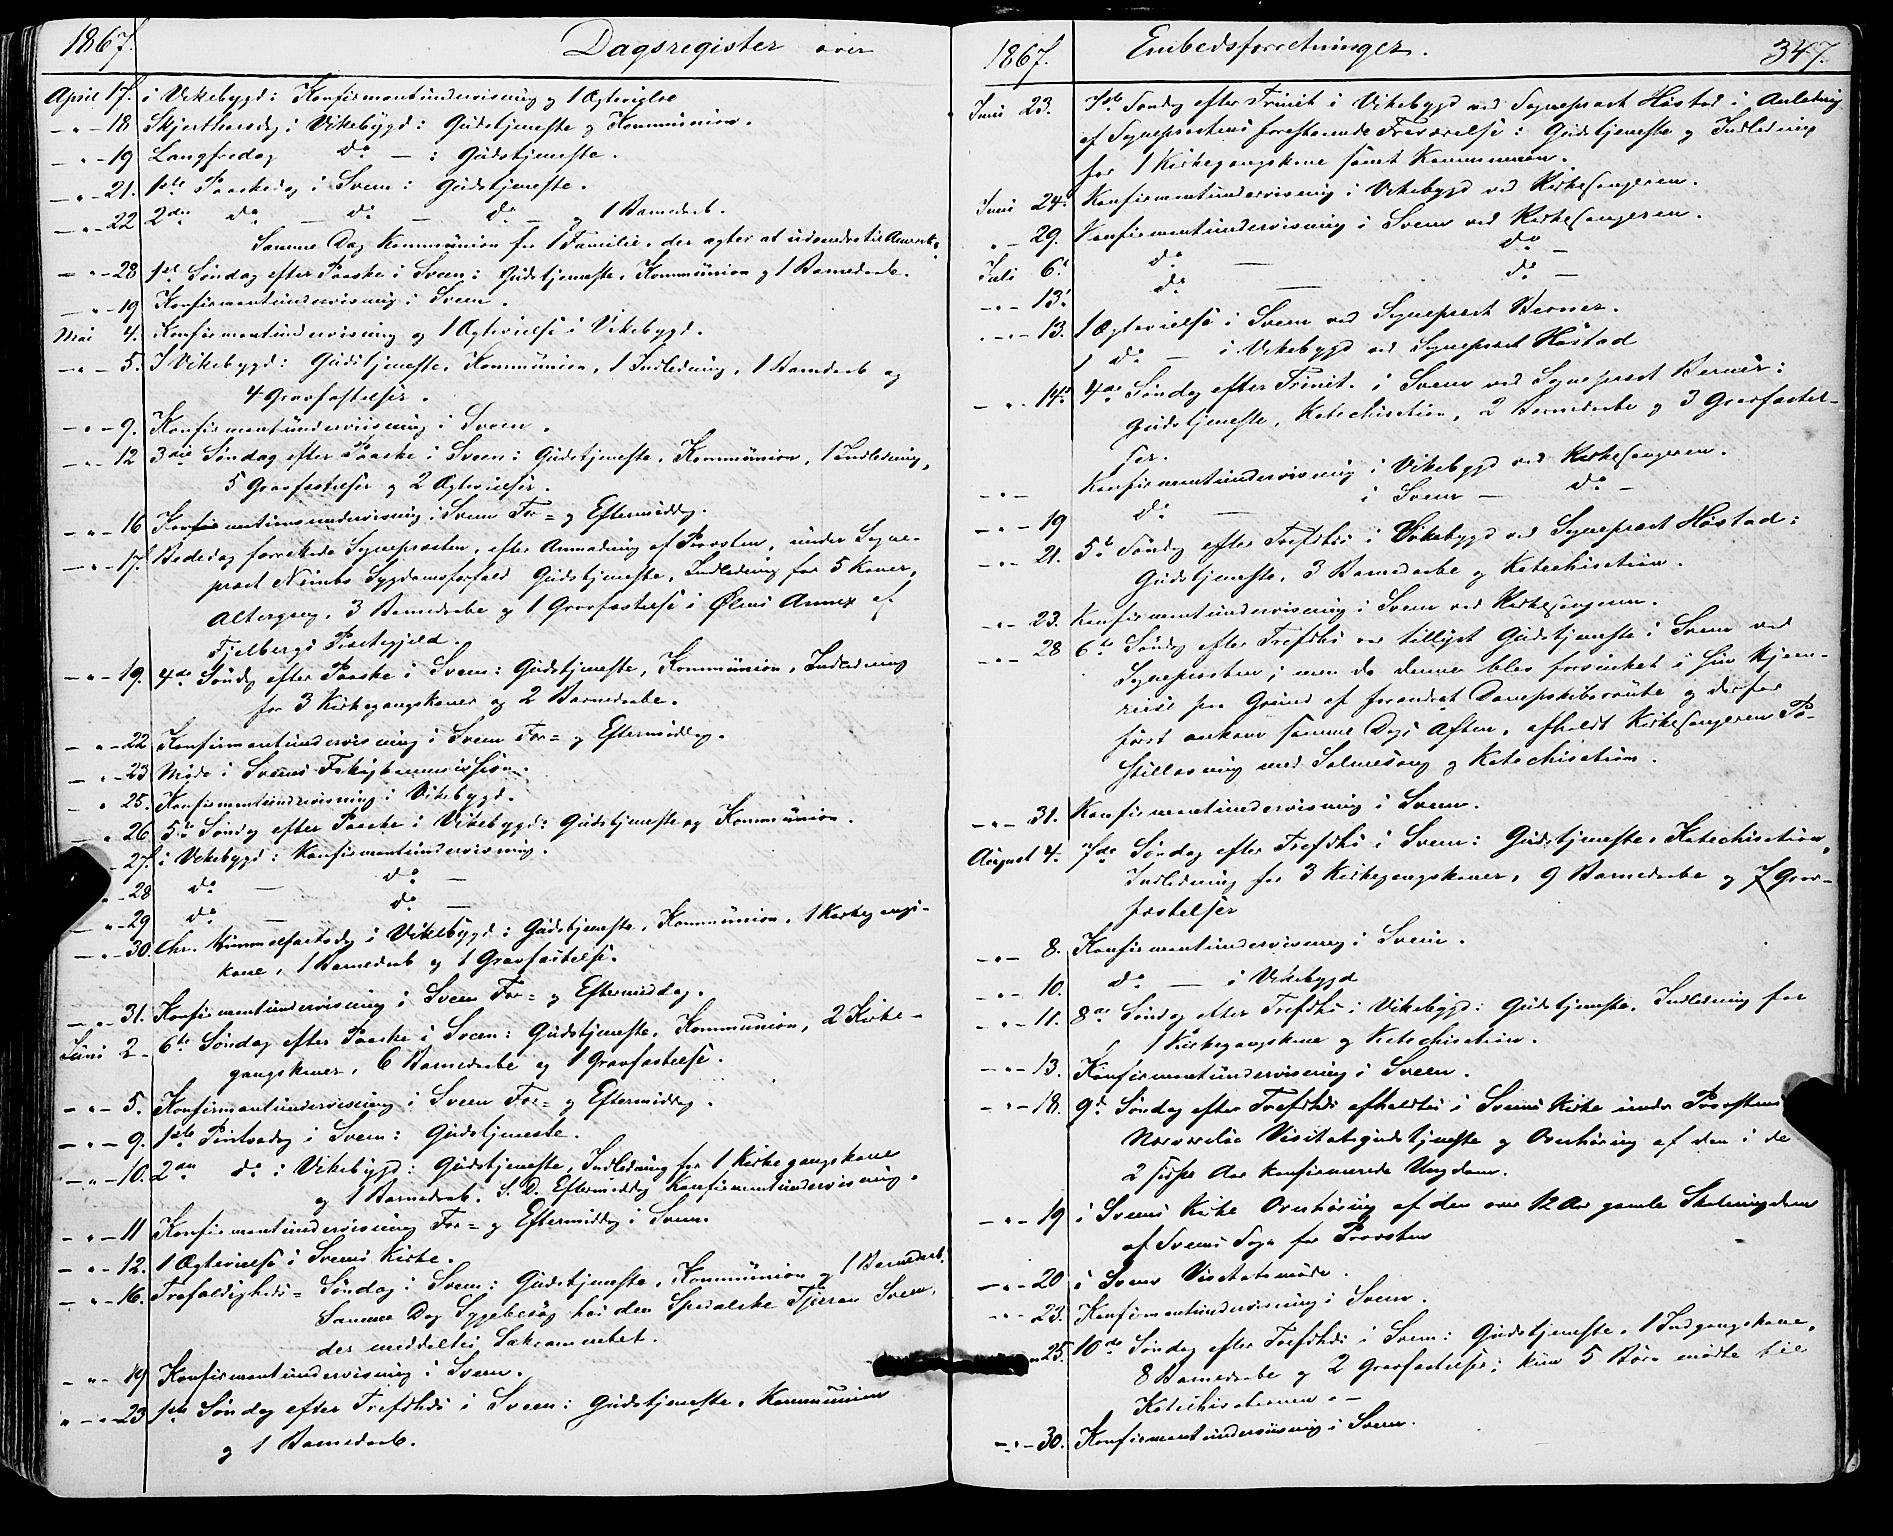 1867. Dagsregister over
April 17. i Vikebygd: Konfirmantundervisning og 1 Ægtevielse
— " — 18 Skjærthorsdag i Vikebygd: Gudstjeneste og Kommunion.
— " — 19 Langfredag do — : Gudstjeneste.
— " — 21. 1ste Paaskedag i Sveen: Gudstjeneste.
— " — 22 2den do — do — do — og 1 Barnedaab.
Samme Dag Kommunion for 1 Familie, der agter at udvandre til Amerik.
— " — 28 1ste Søndag efter Paaske i Sveen: Gudstjeneste, Kommunion og 1 Barnedaab.
— " — 19 Konfirmantundervisning i Sveen.
Mai 4. Konfirmantundervisning og 1 Ægtevielse i Vikebygd.
— " — 5. I Vikebygd: Gudstjeneste, Kommunion, 1 Indledning, 1 Barnedaab og
4 Gravfæstelser.
— " — 9. Konfirmantundervisning i Sveen.
— " — 12 3die Søndag efter Paaske i Sveen: Gudstjeneste, Kommunion, 1 Indledning,
5 Gravfæstelser og 2 Ægtevielser.
— " — 16 Konfirmationsundervisning i Sveen For= og Eftermiddag.
— " — 17. Bededag forrettede Sognepræsten, efter Anmodning af Provsten, under Sogne-
præst Sygdomsforfald Gudstjeneste, Indledning for 5 Koner,
Altergang, 3 Barnedaabe og 1 Gravfæstelse i Ølens Annex af
Fjelbergs Præstegjeld.
— " — 19. 4de Søndag efter Paaske i Sveen: Gudstjeneste, Kommunion, Indledning
for 3 Kirkegangskoner og 2 Barnedaabe.
— " — 22 Konfirmantundervisning i Sveen For= og Eftermiddag.
— " — 23 Møde i Sveens Fattigkommission.
— " 25. Konfirmantundervisning i Vikebygd.
— " 26 5te Søndag efter Paaske i Vikebygd: Gudstjeneste og Kommunion.
27. i Vikebygd: Konfirmantundervisning.
" — 28 do — do —
" — 29 do — do —
— " — 30. Chr. Himmelfartsdag i Vikebygd: Gudstjeneste, Kommunion, 1 Kirkegangs-
kone, 1 Barnedaab og 1 Gravfæstelse.
— " — 31. Konfirmantundervisning i Sveen For= og Eftermiddag.
Juni 2 — 6te Søndag efter Paaske i Sveen: Gudstjeneste, Kommunion, 2 Kirke-
gangskoner, 6 Barnedaabe og 1 Gravfæstelse.
— " — 5. Konfirmantundervisning i Sveen For= og Eftermiddag.
— " — 9. 1ste Pintsedag i Sveen: Gudstjeneste.
— " — 10. 2den do i Vikebygd: Gudstjeneste, Indledning for 1 Kirkegangskone
og 1 Barnedaab. S. D. Eftermiddag Konfirmantundervisning.
— " — 11 Konfirmantundervisning For= og Eftermiddag i Sveen.
— " — 12. 1 Ægtevielse i Sveens Kirke.
— " — 16. Trefoldigheds= Søndag i Sveen: Gudstjeneste, Kommunion og 1 Barnedaab.
Samme Dag Sygebesøg hos den Spedalske Sveen,
der meddeltes Sakramentet.
— " — 19 Konfirmantundervisning i Sveen.
" — " — 23 1ste Søndag efter Trefdhds i Sveen: Gudstjeneste, Kommunion
og 1 Barnedaab.
1867. Embedsforretninger. 347.
Juni 23. Søndag efter Trinit i Vikebygd ved Sognepræst Høstad i Anledning
af Sognepræstens forestaaende Fraværelse: Gudstjeneste og Indledning
for 1 Kirkegangskone samt Kommunion.
Juni 24. Konfirmantundervisning i Vikebygd ved Kirkesangeren.
" — 29. Konfirmantundervisning i Sveen ved Kirkesangeren.
Juli 6. do — do —
— " — 13. do — do —
— " — 13. 1 Ægtevielse i Sveen ved Sognepræst Berner.
1 do — i Vikebygd ved Sognepræst Høstad
— " — 14. 4de Søndag efter Trinit. i Sveen ved Sognepræst Berner:
Gudstjeneste, Katechisation, 2 Barnedaabe og 3 Gravfæstel-
ser.
— " — Konfirmantundervisning i Vikebygd ved Kirkesangeren.
— " — 19 do — i Sveen — do —
— " — 21. 5te Søndag efter Trefdhds i Vikebygd ved Sognepræst Høstad:
Gudstjeneste, 3 Barnedaabe og Katechisation.
— " — 23. Konfirmantundervisning i Sveen ved Kirkesangeren.
— " — 28 6te Søndag efter Trefdhds var tillyst Gudstjeneste i Sveen ved
Sognepræsten; men da denne blev forsinket i sin Hjem-
reise paa Grund af forandret Dampskibsroute og derfor
først ankom samme Dags Aften, afholdt Kirkesangeren Po-
stillæsning med Salmesang og Katechisation.
— " — 31. Konfirmantundervisning i Sveen.
August 4. 7de Søndag efter Trefdhds i Sveen: Gudstjeneste, Katechisation,
Indledning for 3 Kirkegangskoner, 9 Barnedaabe og 7 Grav-
fæstelser
— " — 8. Konfirmantundervisning i Sveen.
— " — 10. do — i Vikebygd
— " — 11. 8de Søndag efter Trefdhds i Vikebygd: Gudstjeneste, Indledning for
1 Kirkegangskone og Katechisation.
— " — 13. Konfirmantundervisning i Sveen.
— " — 18. 9de Søndag efter Trefdhds afholdtes i Sveens Kirke under Provstens
Nærværelse Visitatsgudstjeneste og Overhøring af den i de
2 sidste Aar konfirmerede Ungdom.
— " — 19 i Sveens Kirke Overhøring af den over 12 Aar gamle Skoleungdom
af Sveens Sogn for Provsten
— " — 20 i Sveen Visitatsmøde.
— " — 23. Konfirmantundervisning i Sveen.
25. 10de Søndag efter Trefdhds i Sveen: Gudstjeneste, 1 Indgangskone,
8 Barnedaabe og 2 Gravfæstelser; kun 5 Børn mødte til
Katechisationen. —
— " — 30. Konfirmantundervisning i Sveen.